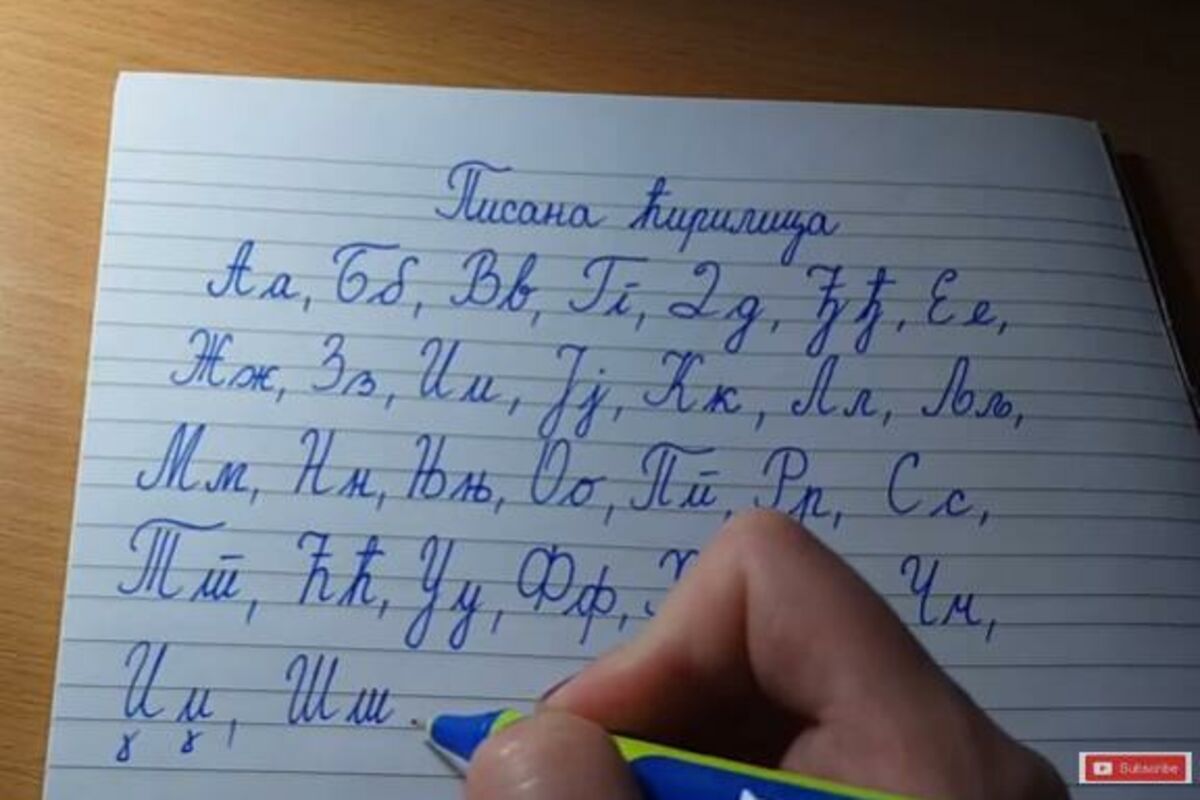 Писана ћирилица
Аа, Бб, Вв, Гг, Дд, Ђђ, Ее,
Жж, Зз, Ии, Јј, Кк, Лл, Љљ,
Мм, Нн, Њњ, Оо, Пп, Рр, Сс,
Тт, Ћћ, Уу, Фф, Чч,
Џџ, Шш
Subscribe